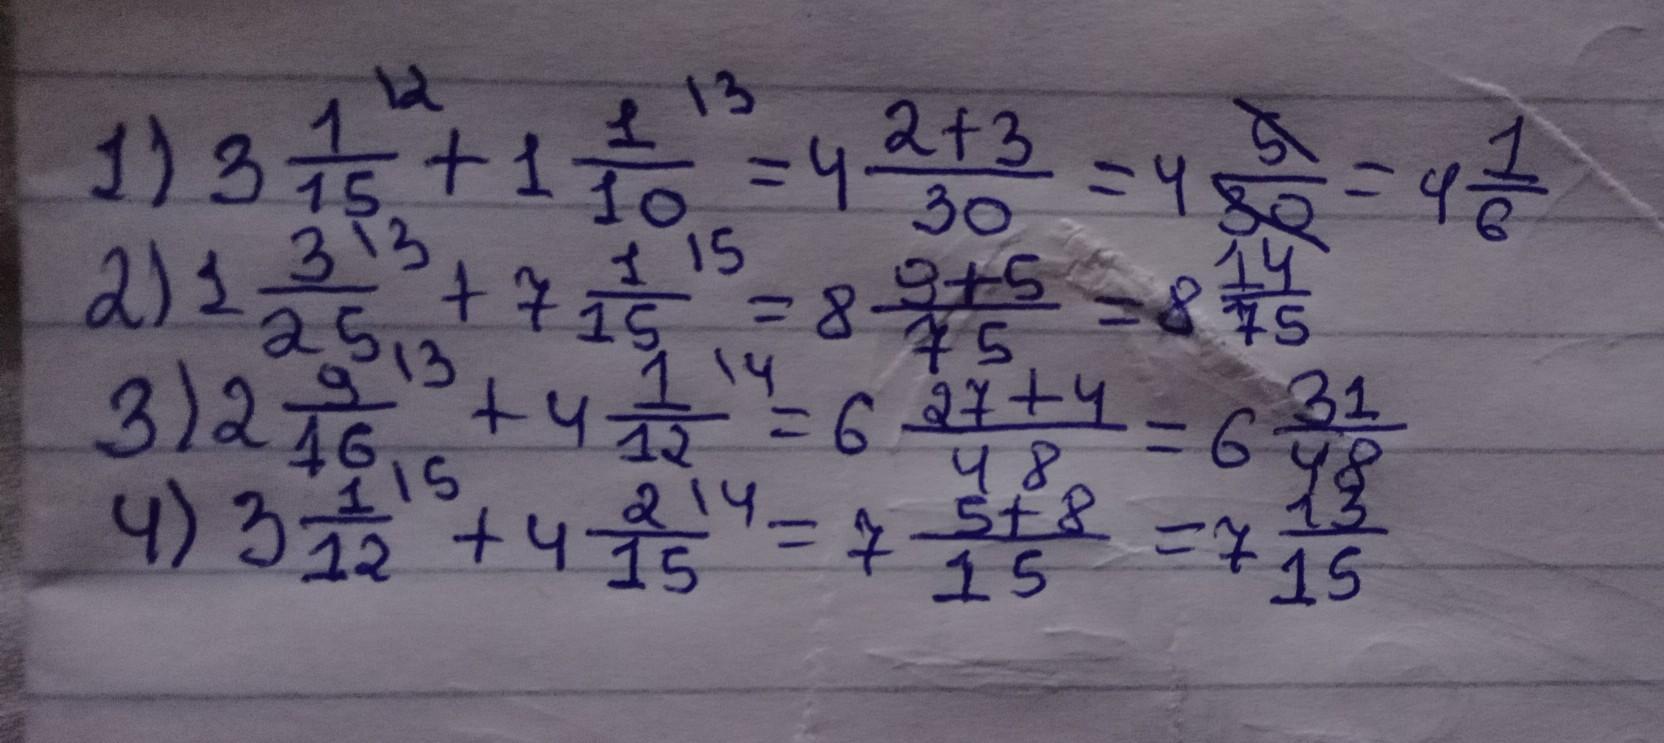 1) 3 1/15 \2 + 1 1/10 \3 = 4 2+3/30 = 4 5/30 = 4 1/6
2) 1 3/25 \3 + 7 1/15 \5 = 8 9+5/75 = 8 14/75
3) 2 9/16 \3 + 4 1/12 \4 = 6 27+4/48 = 6 31/48
4) 3 1/12 \5 + 4 2/15 \4 = 7 5+8/15 = 7 13/15